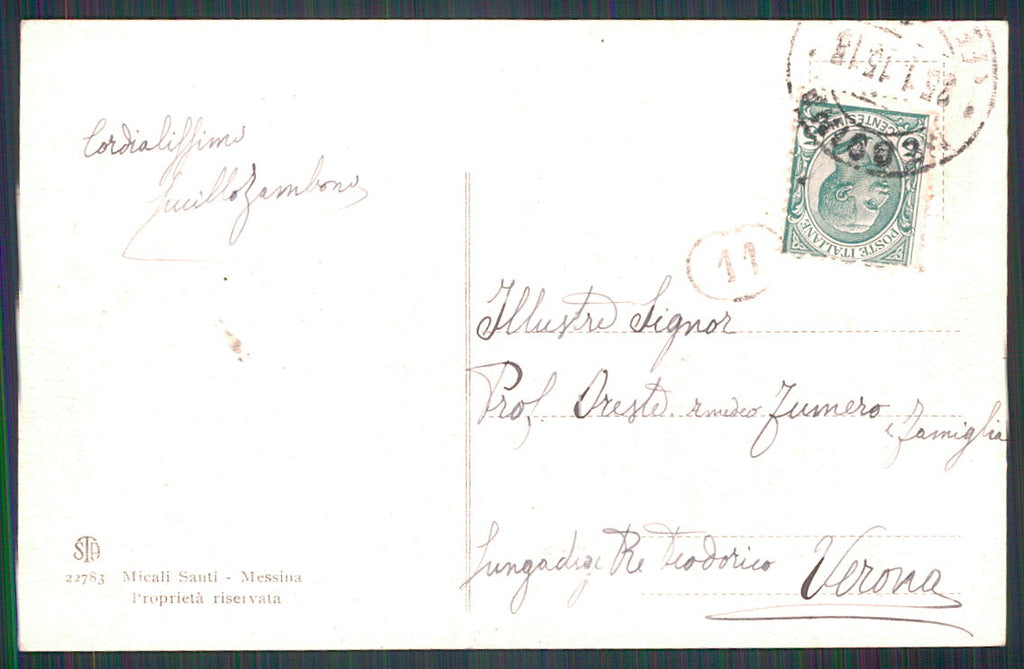 Cordialissimo
Lucillo Zambono
11
CENTESIMI
POSTE ITALIANE
Illustre Signor
Prof. Oreste Amedeo Zumero
e famiglia
Lungadige Re Teodorico
Verona
STA
22783 Micali Santi - Messina
Proprietà riservata